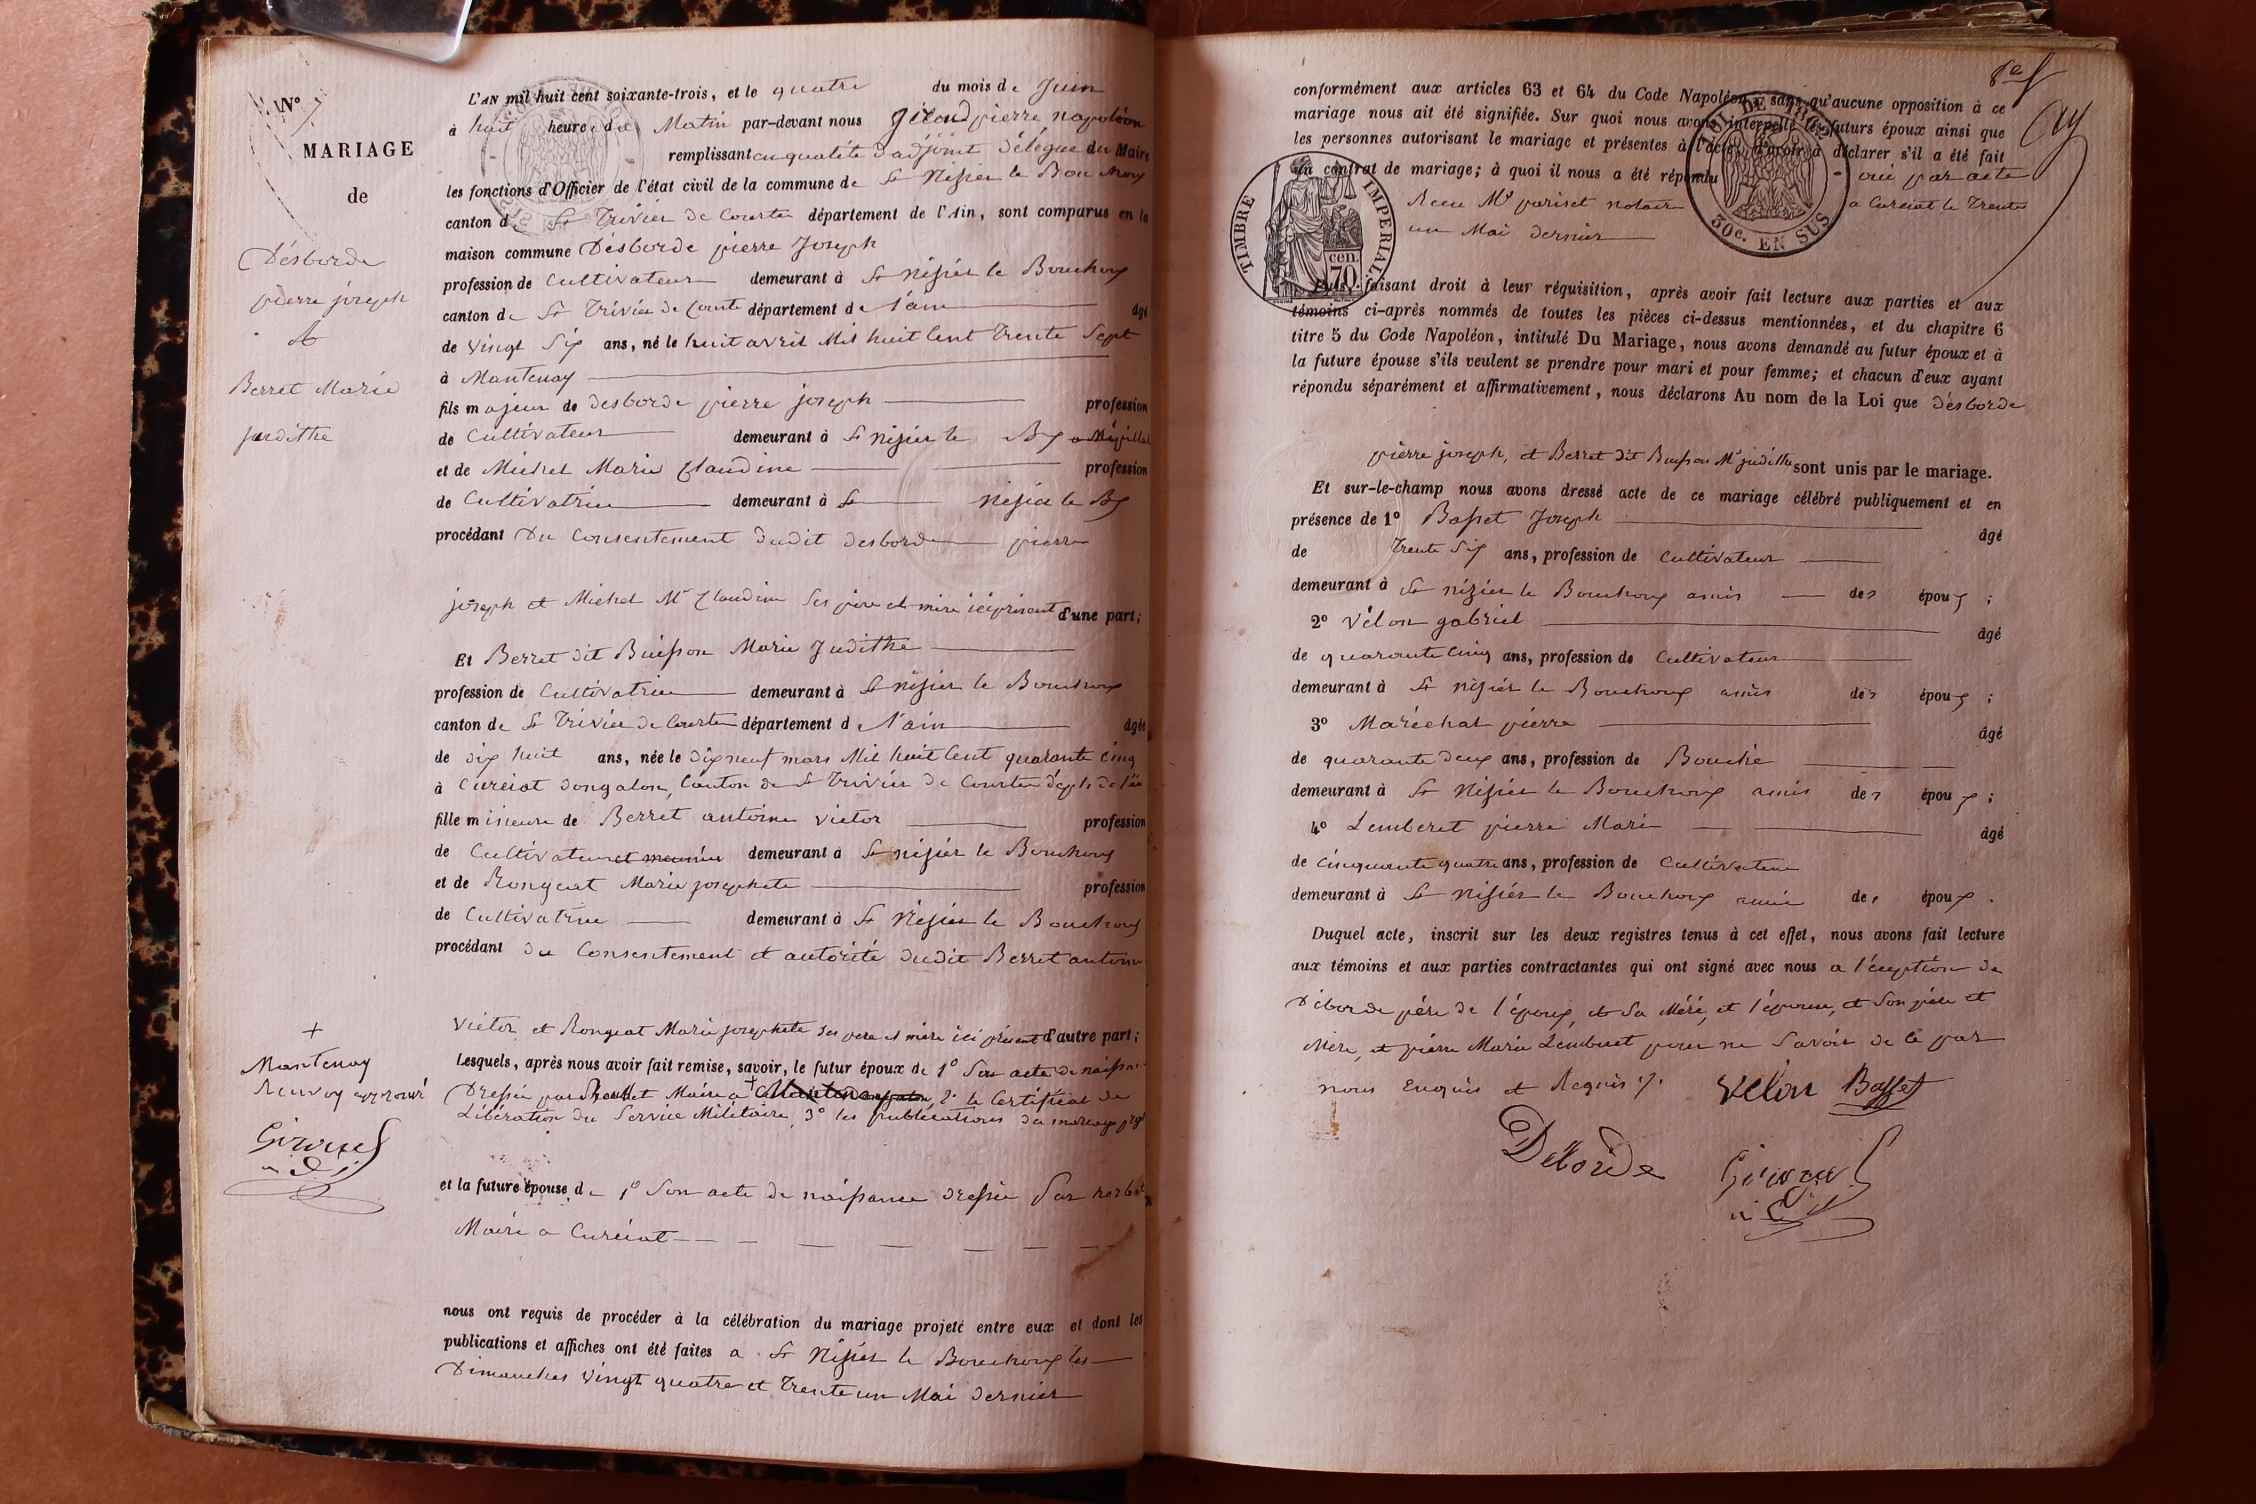 N° 7
MARIAGE
de
Désborde
pierre joseph
&
Berret Marie
judithe
L'AN mil huit cent soixante-trois, et le quatre du mois de Juin
à huit heures du Matin par-devant nous girand pierre napoléon
remplissant en qualité d'adjoint délégué du Maire
les fonctions d'Officier de l'état civil de la commune de St Nizier le Bouchoux
canton de St Trivier de Courtes département de l'Ain, sont comparus en la
maison commune Désborde pierre Joseph
profession de Cultivateur demeurant à St nizier le Bouchoux
canton de St Trivier de Courte département de l'ain âgé
de vingt Six ans, né le huit avril Mil huit Cent Trente Sept
à Mantenay
fils majeur de desborde pierre joseph profession
de Cultivateur demeurant à St nizier le Bx
et de Michel Marie Claudine profession
de Cultivatrice demeurant à St Nizier le Bx
procédant Du Consentement dudit desborde pierre
joseph et Michel Mie Claudine Ses père et mère ici présent d'une part;
Et Berret dit Buisson Marie Judithe
profession de Cultivatrice demeurant à St nizier le Bouchoux
canton de St Trivier de Courtes département de l'ain âgée
de dix huit ans, née le dix neuf mars Mil huit Cent quarante cinq
à Curciat dongalon, Canton de St Trivier de Courtes dépt de l'ain
fille mineure de Berret antoine victor profession
de Cultivateur et meunier demeurant à St nizier le Bouchoux
et de Rongeat Marie josephete profession
de Cultivatrice demeurant à St Nizier le Bouchoux
procédant du Consentement et autorité dudit Berret antoine
Victor et Rongeat Marie josephete ses père et mère ici présent d'autre part;
Lesquels, après nous avoir fait remise, savoir, le futur époux de 1° Son acte de naissance
Dressée par Maire a + 2° le Certificat de
Libération du Service Militaire, 3° les publications du mariage
et la future épouse de 1° Son acte de naissance dressée par
Maire a Curciat
nous ont requis de procéder à la célébration du mariage projeté entre eux et dont les
publications et affiches ont été faites a St Nizier le Bouchoux les
Dimanches vingt quatre et Trente un Mai dernier
+
Mantenay
Renvoy approuvé
Girand
conformément aux articles 63 et 64 du Code Napoléon, sans qu'aucune opposition à ce
mariage nous ait été signifiée. Sur quoi nous avons interpellé les futurs époux ainsi que
les personnes autorisant le mariage et présentes à l'acte, d'avoir à déclarer s'il a été fait
un contrat de mariage; à quoi il nous a été répondu oui par acte
Recu Me pariset notaire a Curciat le Trente
un Mai dernier
TIMBRE IMPERIAL
70 cen.
30c. EN SUS
Puis, faisant droit à leur réquisition, après avoir fait lecture aux parties et aux
témoins ci-après nommés de toutes les pièces ci-dessus mentionnées, et du chapitre 6
titre 5 du Code Napoléon, intitulé Du Mariage, nous avons demandé au futur époux et à
la future épouse s'ils veulent se prendre pour mari et pour femme; et chacun d'eux ayant
répondu séparément et affirmativement, nous déclarons Au nom de la Loi que désborde
pierre joseph, et Berret dit Buisson Mie judithe sont unis par le mariage.
Et sur-le-champ nous avons dressé acte de ce mariage célébré publiquement et en
présence de 1° Basset Joseph âgé
de Trente Six ans, profession de Cultivateur
demeurant à St nizier le Bouchoux amis des époux;
2° Vélon gabriel âgé
de quarante Cinq ans, profession de Cultivateur
demeurant à St nizier le Bouchoux amis des époux;
3° Maréchal pierre âgé
de quarante deux ans, profession de Bouché
demeurant à St Nizier le Bouchoux amis des époux;
4° Lemberet pierre Marie âgé
de Cinquante quatre ans, profession de Cultivateur
demeurant à St Nizier le Bouchoux amis des époux.
Duquel acte, inscrit sur les deux registres tenus à cet effet, nous avons fait lecture
aux témoins et aux parties contractantes qui ont signé avec nous a l'éxeption de
Déborde père de l'époux, et Sa Mère, et l'épouse, et Son père et
Mère, et pierre Marie Lemberet pour ne Savoir de ce par
nous Enquis et Requis
Velon Basset
Déborde Girand